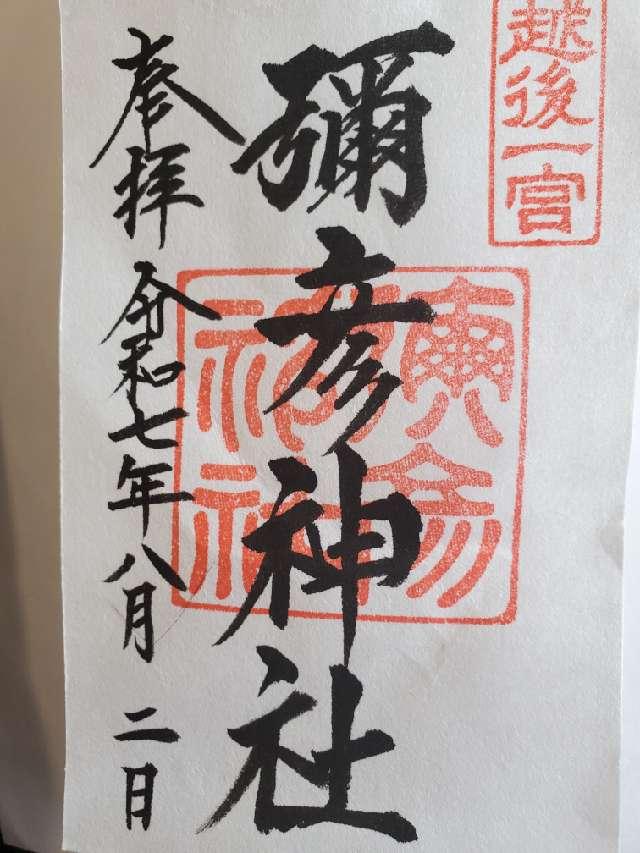 越後一宮
彌彦神社
奉拝
令和七年八月二日